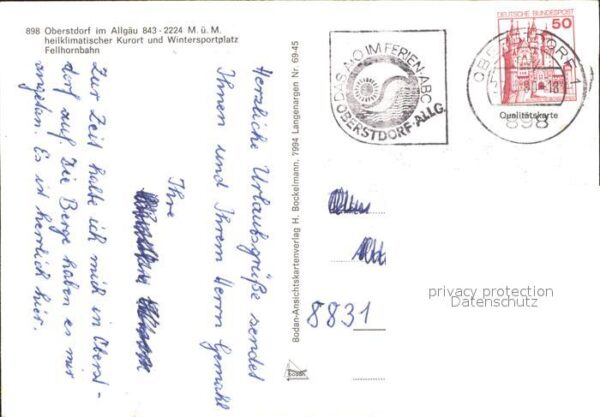 898 Oberstdorf im Allgäu 843 - 2224 M. ü. M.
heilklimatischer Kurort und Wintersportplatz
Fellhornbahn
Zur Zeit halte ich mich in Oberst-
dorf auf. Die Berge haben es mir
angetan. Es ist herrlich hier.
Herzliche Urlaubsgrüße sendet
Ihnen und Ihrem Herrn Gemahl
Ihre
Bodan-Ansichtskartenverlag H. Bockelmann, 7994 Langenargen Nr 69-45
BODAN
DAS A-O IM FERIEN-ABC
OBERSTDORF-ALLG.
DEUTSCHE BUNDESPOST
50
OBERSTDORF 1
898
Qualitätskarte
8831
privacy protection
Datenschutz